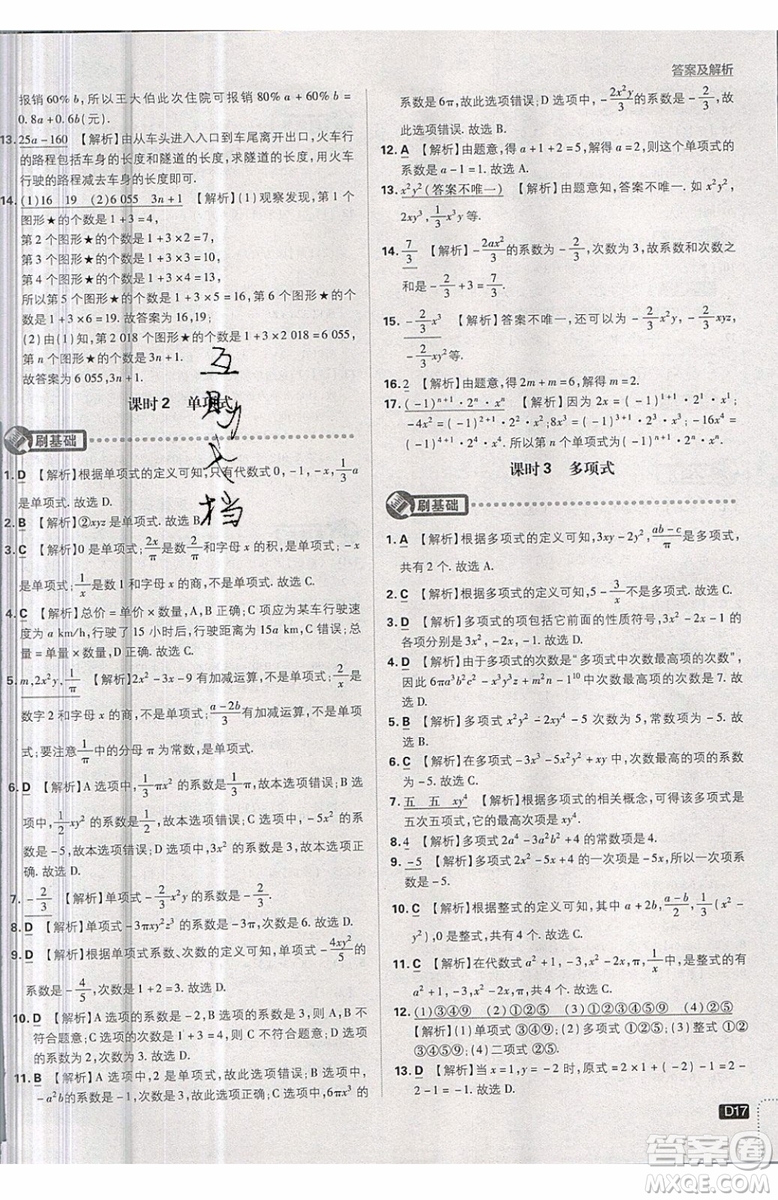 答案及解析
报销 60% b，所以王大伯此次住院可报销 80% a + 60% b =
0.8a + 0.6b(元).
13. 25a - 160 【解析】由从车头进入入口到车尾离开出口，火车行
的路程包括车身的长度和隧道的长度，求隧道的长度，用火车
行驶的路程减去车身的长度即可.
14. (1)16 19 (2)6 055 3n + 1 【解析】(1)观察发现，第 1 个
图形★的个数是 1 + 3 = 4，
第 2 个图形★的个数是 1 + 3 × 2 = 7，
第 3 个图形★的个数是 1 + 3 × 3 = 10，
第 4 个图形★的个数是 1 + 3 × 4 = 13，
所以第 5 个图形★的个数是 1 + 3 × 5 = 16，第 6 个图形★的个
数是 1 + 3 × 6 = 19. 故答案为 16，19；
(2)由(1)知，第 2 018 个图形★的个数是 1 + 3 × 2 018 = 6 055，
第 n 个图形★的个数是 3n + 1.
故答案为 6 055，3n + 1.
课时 2 单项式
刷基础
1. D 【解析】根据单项式的定义可知，只有代数式 0，-1，-x，1/3 a
是单项式. 故选 D.
2. B 【解析】②xyz 是单项式. 故选 B.
3. C 【解析】0 是单项式，2x/π 是数和字母 x 的积，是单项式，-x
是单项式，1/x 是数 1 和字母 x 的商，不是单项式. 故选 C.
4. C 【解析】总价 = 单价 × 数量，A、B 正确；C 项应为某车行驶速
度为 a km/h，行驶了 15 小时后，行驶距离为 15a km，C 错误；总
量 = 单量 × 数量，D 正确. 故选 C.
5. m，2x²y，1/π 【解析】2x² - 3x - 9 有加减运算，不是单项式，2/x 是
数字 2 和字母 x 的商，不是单项式，(a - 2b)/3 有加减运算，不是单项
式；要注意 1/π 中的分母 π 为常数，是单项式.
6. D 【解析】A 选项中，1/3 πx² 的系数是 1/3 π，故本选项错误；B 选
项中，1/2 xy² 的系数是 1/2，故本选项错误；C 选项中，-5x² 的系
数是 -5，故本选项错误；D 选项中，3x² 的系数是 3，正确. 故选 D.
7. -2/3
8. D 【解析】单项式 -3πxy²z³ 的系数是 -3π，次数是 6. 故选 D.
9. D 【解析】根据单项式系数、次数的定义可知，单项式 -4xy²/5 的
系数是 -4/5，次数是 1 + 2 = 3. 故选 D.
10. D 【解析】A 选项的次数是 3，不符合题意；B 选项的次数是 3，
不符合题意；C 选项的次数是 1 + 3 = 4，符合题意；D 选
项的次数为 2，不符合题意. 故选 D.
11. B 【解析】A 选项，-x²y 的系数是 -1，故此选项错误；B 选项，
-x²y 的系数是 -1，正确；C 选项，1/3 πx² 的系数是 1/3 π，故
系数是 6，故此选项错误；D 选项中，-2x²y/3 的系数是 -2/3，故
此选项错误. 故选 B.
12. A 【解析】由题意，得 a + 1 + 2 = 5，解得 a = 2，则这个单项式的
系数是 a - 1 = 1. 故选 A.
13. x²y²(答案不唯一) 【解析】由题意知，答案不唯一. 如 x²y²，
x³y，1/3 x³y 等.
14. 7/3 【解析】-2ax²/3 的系数为 -2/3，次数为 3，故系数和次数之
和是 -2/3 + 3 = 7/3.
15. -2/3 x³ 【解析】答案不唯一，还可以为 -2/3 x²y，-2/3 xyz，
-2/3 xy² 等.
16. 2 【解析】由题意，得 2m + m = 6，解得 m = 2.
17. (-1)ⁿ⁺¹ · 2ⁿ · xⁿ 【解析】2x = (-1)¹⁺¹ · 2¹ · x¹；
-4x² = (-1)²⁺¹ · 2² · x²；8x³ = (-1)³⁺¹ · 2³ · x³；-16x⁴ =
(-1)⁴⁺¹ · 2⁴ · x⁴；则第 n 个单项式为 (-1)ⁿ⁺¹ · 2ⁿ · xⁿ.
课时 3 多项式
刷基础
1. A 【解析】根据多项式的定义可知，3xy - 2y²，(ab - c)/π 是多项式，
共有 2 个. 故选 A.
2. C 【解析】根据多项式的定义可知，5 - 3/x 不是多项式. 故选 C.
3. D 【解析】多项式的项包括它前面的性质符号，3x² - 2x - 1 的
各项分别是 3x²，-2x，-1. 故选 D.
4. D 【解析】由于多项式的次数是“多项式中次数最高项的次数”，
因此 6πa³c²b + 7x⁸ - yz³ + m²n - 10 中次数最高项的次数为
8. 故选 D.
5. B 【解析】多项式 x⁵ - 3x² - 5 次数为 5，常数项为 -5. 故选 B.
6. C 【解析】在多项式 -x³ - 5x² - x + 1 中，次数最高的项的系数
为 -5. 故选 C.
7. 五 五 xy⁴ 【解析】根据多项式的相关概念，可得该多项式是五
次五项式，它的最高次项为 xy⁴.
8. 4 【解析】多项式 2a⁴ - 3a²b² + 4 的常数项是 4.
9. -5 【解析】多项式 x² - 2x² - 5x + 3 的次数是 3，所以一次项系
数是 -5.
10. C 【解析】根据整式的定义可知，a + 2b，(a - b)/2，1/3(x² - y²)，
2/a，0 是整式，共有 4 个. 故选 C.
11. C 【解析】在代数式 a² + 1，-3，x² - 2x，π，1/x 中，是整式的
有 a² + 1，-3，x² - 2x，π，共 4 个. 故选 C.
12. (1)③④⑨ (2)①②⑤ (3)①②③④⑤⑨ (4)①②⑤
【解析】(1)单项式 ③④⑨；(2)多项式 ①②⑤；(3)整式 ①②
③④⑤⑨；(4)二项式 ①②⑤.
13. D 【解析】当 x = 1，y = -1 时，原式 = 2 × 1 + 2 × (-1) - 1 =
2 - 2 - 1 = -1. 故选 D.
D17
互助文档
答案圈
MXQE.COM